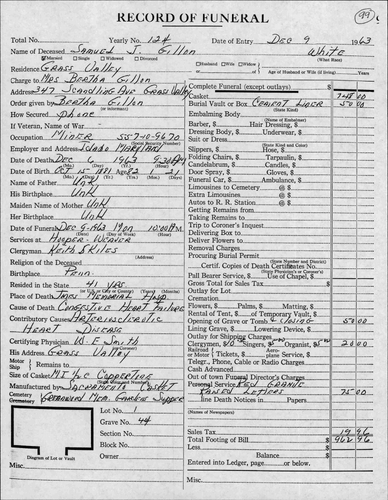 RECORD OF FUNERAL
99
Total No. Yearly No. 124 Date of Entry DEC 9 1963
Name of Deceased SAMUEL J. GILLON White
Married Single Widowed Divorced Husband Wife Widow (What Race)
Residence GRASS VALLEY or Age of Husband or Wife (if living) Years
Charge to MRS BERTHA GILLON
Address 347 GRASS VALLEY
Order given by BERTHA GILLON
How Secured PHONE
If Veteran, Name of War
Occupation MINER
(Social Security Number)
Employer and Address IDAHO MARYLAND
Date of Death DEC 6 1963 9:30 AM
Date of Birth OCT 15 1881 Age 82 1 21
Name of Father UNK
His Birthplace UNK
Maiden Name of Mother UNK
Her Birthplace UNK
Date of Funeral DEC 9-1963 MON 10:00 AM
Services at HOOPER-WEAVER
Clergyman KEITH SKILES
Religion of the Deceased
Birthplace PENN.
Resided in the State 41 YRS
Place of Death JONES MEMORIAL HOSP
Cause of Death CONGESTIVE HEART FAILURE
Contributory Causes ARTERIOSCLEROTIC
HEART DISEASE
Certifying Physician W E SMITH
His Address GRASS VALLEY
Motor
Ship Remains to
Size of Casket COPPERTINE
Manufactured by SACRAMENTO CASKET
Cemetery
Crematory GREENWOOD MEM. GARDENS
Lot No. 1
Grave No. 44
Section No.
Block No.
Diagram of Lot or Vault
Owner
Misc.
Complete Funeral (except outlays) $
Casket
Burial Vault or Box CEMENT LINER 50 00
(State Kind)
Embalming Body
(Name of Embalmer)
Barber, $ Hair Dressing, $
Dressing Body, $ Underwear, $
Suit or Dress
(State Kind and Color)
Slippers, $ Hose, $
Folding Chairs, $ Tarpaulin, $
Candelabrum, $ Candles, $
Door Spray, $ Gloves, $
Funeral Car, $ Ambulance, $
Limousines to Cemetery @ $
Extra Limousines @ $
Autos to R. R. Station @ $
Getting Remains from
Taking Remains to
Trip to Coroner's Inquest
Delivering Box to
Deliver Flowers to
Removal Charges
Procuring Burial Permit
(State Number and District)
Certif. Copies of Death Certificates No.
(State Physician's or Coroner's)
Pall Bearer Service, $ Use of Chapel, $
Gross Total for Sales Tax $
Outlay for Lot
Cremation
Flowers, $ Palms, $ Matting, $
Rental of Tent, $ of Temporary Vault, $
Opening of Grave or Tomb & CLOSING 50 00
Lining Grave, $ Lowering Device, $
Outlay for Shipping Charges
Clergymen, $ Singers, $ Organist, $ 20 00
Railroad
or Motor Tickets, $ Aero-plane Service, $
Telgr., Phone, Cable or Radio Charges
Cash Advanced
Out of town Funeral Director's Charges
Personal Service RED GRANITE
RAISED LETTERS 75 00
line Death Notices Papers
(Names of Newspapers)
Sales Tax 19 96
Total Footing of Bill $ 962 96
Less $
Balance $
Entered into Ledger, page or below.